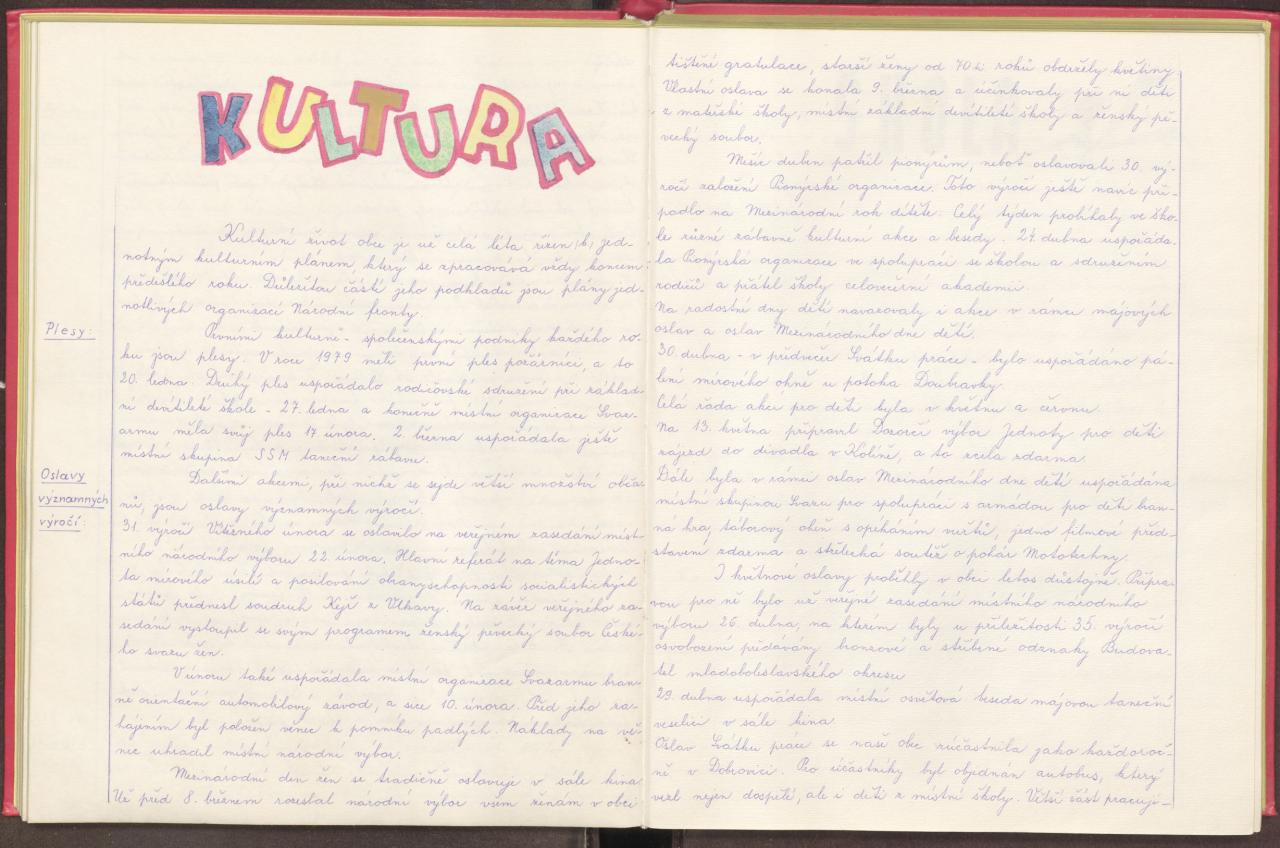 KULTURA
Kulturní život obce je už celá léta řízen jed-
notným kulturním plánem, který se zpracovává vždy koncem
předešlého roku. Důležitou částí jeho podkladů jsou plány jed-
notlivých organizací Národní fronty.
Plesy:
Prvními kulturně - společenskými podniky každého ro-
ku jsou plesy. V roce 1979 měli první ples požárníci, a to
20. ledna. Druhý ples uspořádalo rodičovské sdružení při základ-
ní devítileté škole - 27. ledna a konečně místní organizace Svaz-
armu měla svůj ples 17. února. 2. března uspořádala ještě
místní skupina SSM taneční zábavu.
Oslavy
významných
výročí:
Dalšími akcemi, při nichž se sejde větší množství obča-
nů, jsou oslavy významných výročí.
31. výročí Vítězného února se oslavilo na veřejném zasedání míst-
ního národního výboru 22. února. Hlavní referát na téma Jedno-
ta mírového úsilí a posilování obranyschopnosti socialistických
států přednesl soudruh Kejř z Vlkavy. Na závěr veřejného za-
sedání vystoupil se svým programem ženský pěvecký soubor České-
ho svazu žen.
V únoru také uspořádala místní organizace Svazarmu bran-
ně orientační automobilový závod, a sice 10. února. Před jeho za-
hájením byl položen věnec k pomníku padlých. Náklady na vě-
nec uhradil místní národní výbor.
Mezinárodní den žen se tradičně oslavuje v sále kina
Už před 8. březnem rozeslal národní výbor všem ženám v obci
tištěné gratulace, starší ženy od 70 roků obdržely květiny
Vlastní oslava se konala 9. března a účinkovaly při ní děti
z mateřské školy, místní základní devítileté školy a ženský pě-
vecký soubor.
Měsíc duben patřil pionýrům, neboť oslavovali 30. vý-
ročí založení Pionýrské organizace. Toto výročí ještě navíc při-
padlo na Mezinárodní rok dítěte. Celý týden probíhaly ve ško-
le různé zábavné kulturní akce a besedy. 27. dubna uspořáda-
la Pionýrská organizace ve spolupráci se školou a sdružením
rodičů a přátel školy celovečerní akademii.
Na radostné dny dětí navazovaly i akce v rámci májových
oslav a oslav Mezinárodního dne dětí.
30. dubna - v předvečer Svátku práce - bylo uspořádáno pá-
lení mírového ohně u potoka Doubravky.
Celá řada akcí pro děti byla v květnu a červnu.
Na 13. května připravil Dozorčí výbor Jednoty pro děti
zájezd do divadla v Kolíně, a to zcela zdarma.
Dále byla v rámci oslav Mezinárodního dne dětí uspořádána
místní skupinou Svazu pro spolupráci s armádou pro děti bran-
ná hra, táborový oheň s opékáním vuřtů, jedno filmové před-
stavení zdarma a střelecká soutěž o pohár Mototechny.
I květnové oslavy proběhly v obci letos důstojně. Přípra-
vou pro ně bylo už veřejné zasedání místního národního
výboru 26. dubna, na kterém byly u příležitosti 35. výročí
osvobození předávány bronzové a stříbrné odznaky Budova-
tel mladoboleslavského okresu
29. dubna uspořádala místní osvětová beseda májovou taneční
veselici v sále kina
Oslav Svátku práce se naše obec zúčastnila jako každoroč-
ně v Dobrovici. Pro účastníky byl objednán autobus, který
vezl nejen dospělé, ale i děti z místní školy. Větší část pracují-